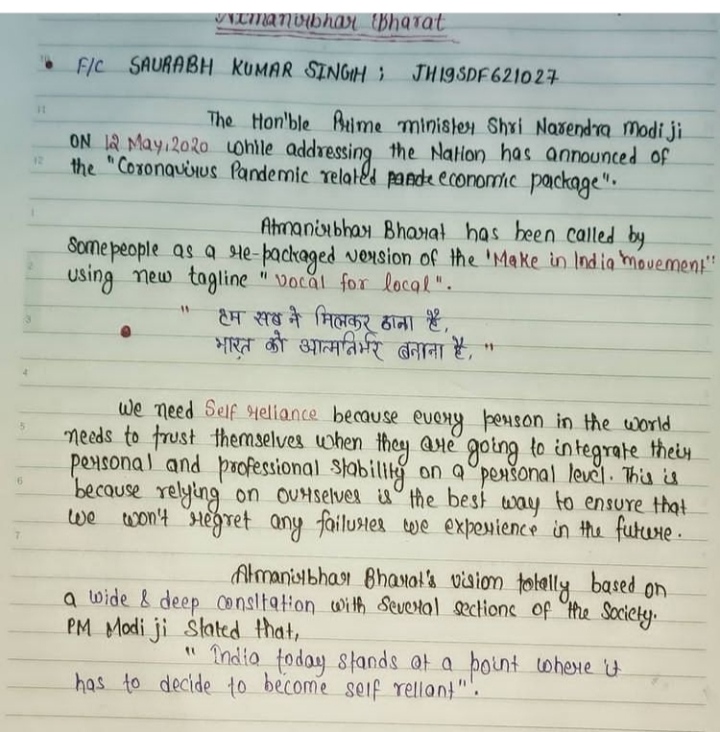 Atmanirbhar Bharat
F/C SAURABH KUMAR SINGH ; JH19SDF621027
The Hon'ble Prime minister Shri Narendra modi ji
ON 12 May, 2020 while addressing the Nation has announced of
the "Coronavirus Pandemic related economic package".
Atmanirbhar Bharat has been called by
Some people as a re-packaged version of the 'Make in India movement"
using new tagline "vocal for local".
" हम सब ने मिलकर ठाना है,
भारत को आत्मनिर्भर बनाना है, "
We need Self reliance because every person in the world
needs to trust themselves when they are going to integrate their
personal and professional stability on a personal level. This is
because relying on ourselves is the best way to ensure that
we won't regret any failures we experience in the future.
Atmanirbhar Bharat's vision totally based on
a wide & deep consltation with several sections of the Society.
PM Modi ji Stated that,
" India today stands at a point where it
has to decide to become self reliant".